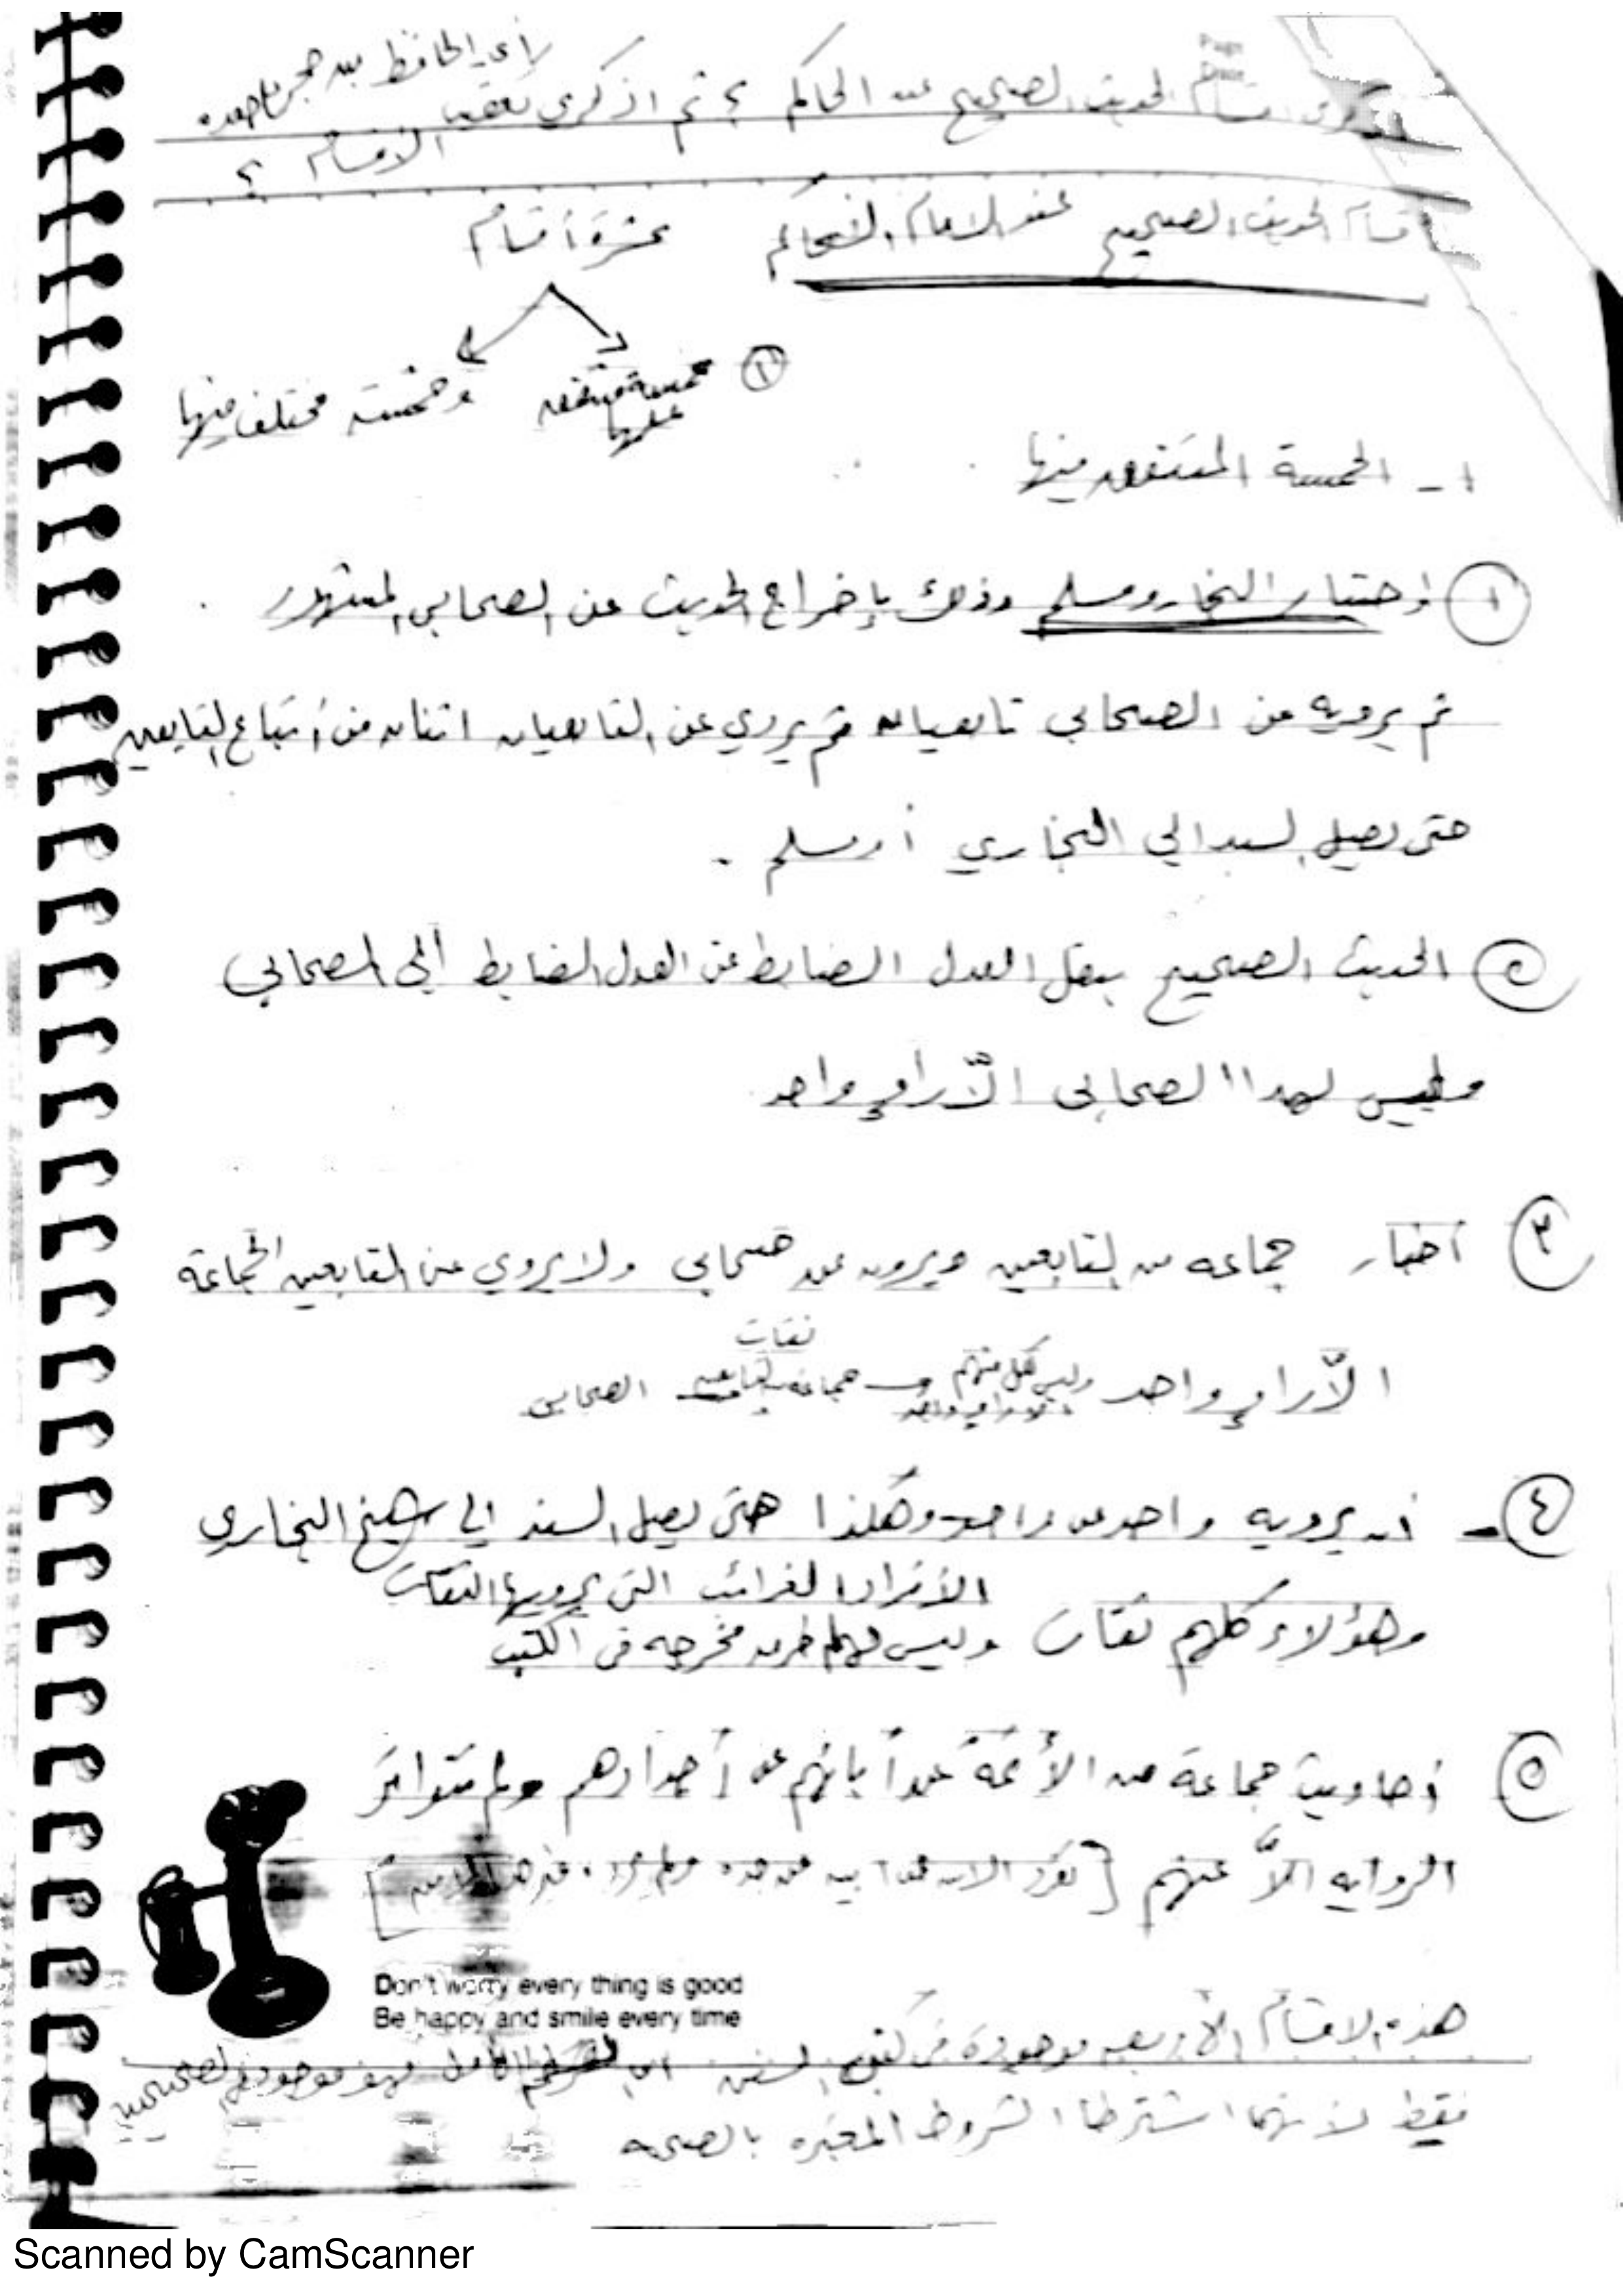 اذكري أقسام الحديث الصحيح عند الحاكم ؟ ثم اذكري تعقيب
رأي الحافظ ابن حجر هذه
الاقسام ؟
أقسام الحديث الصحيح عند الامام الحاكم عشرة أقسام
① خمسة متفقه عليها وخمسة مختلف فيها
١- الخمسة المتفقه فيها
① إختيار البخار ومسلم وذلك بإخراج الحديث عن الصحابي المشهور
ثم يرويه عن الصحابي تابعيان ثم يروي عن التابعيان اثنان من أتباع التابعين
حتى يصل السند الي البخاري أو مسلم .
② الحديث الصحيح بنقل العدل الضابط عن العدل الضابط إلى الصحابي
وليس لهذا الصحابي الّا راوٍ واحد
③ أخبار جماعه من التابعين ويروه عن صحابي ولا يروي عن التابعين الجماعة
الّا راوٍ واحد وليس لكل منهم الا راوي واحد جماعة التابعين ثقات الصحابي
④ - أن يرويه واحد عن واحد وهكذا حتى يصل السند الي شيخ البخاري
الأفراد الغرائب التي يرويها الثقات
وهؤلاء كلهم ثقات وليس لها طرق مخرجه في الكتب
⑤ أحاديث جماعة من الأئمة عن أبائهم عن أجدادهم ولم تتواتر
الروايه الّا عنهم [تفرد الابن عن ابيه عن جده
Don't worry every thing is good
Be happy and smile every time
هذه الاقسام الأربعه موجودة في كتب السنن اما القسم الأول فهو موجود في الصحيحين
فقط لانهما اشترطا الشروط المعتبره بالصحه
Scanned by CamScanner